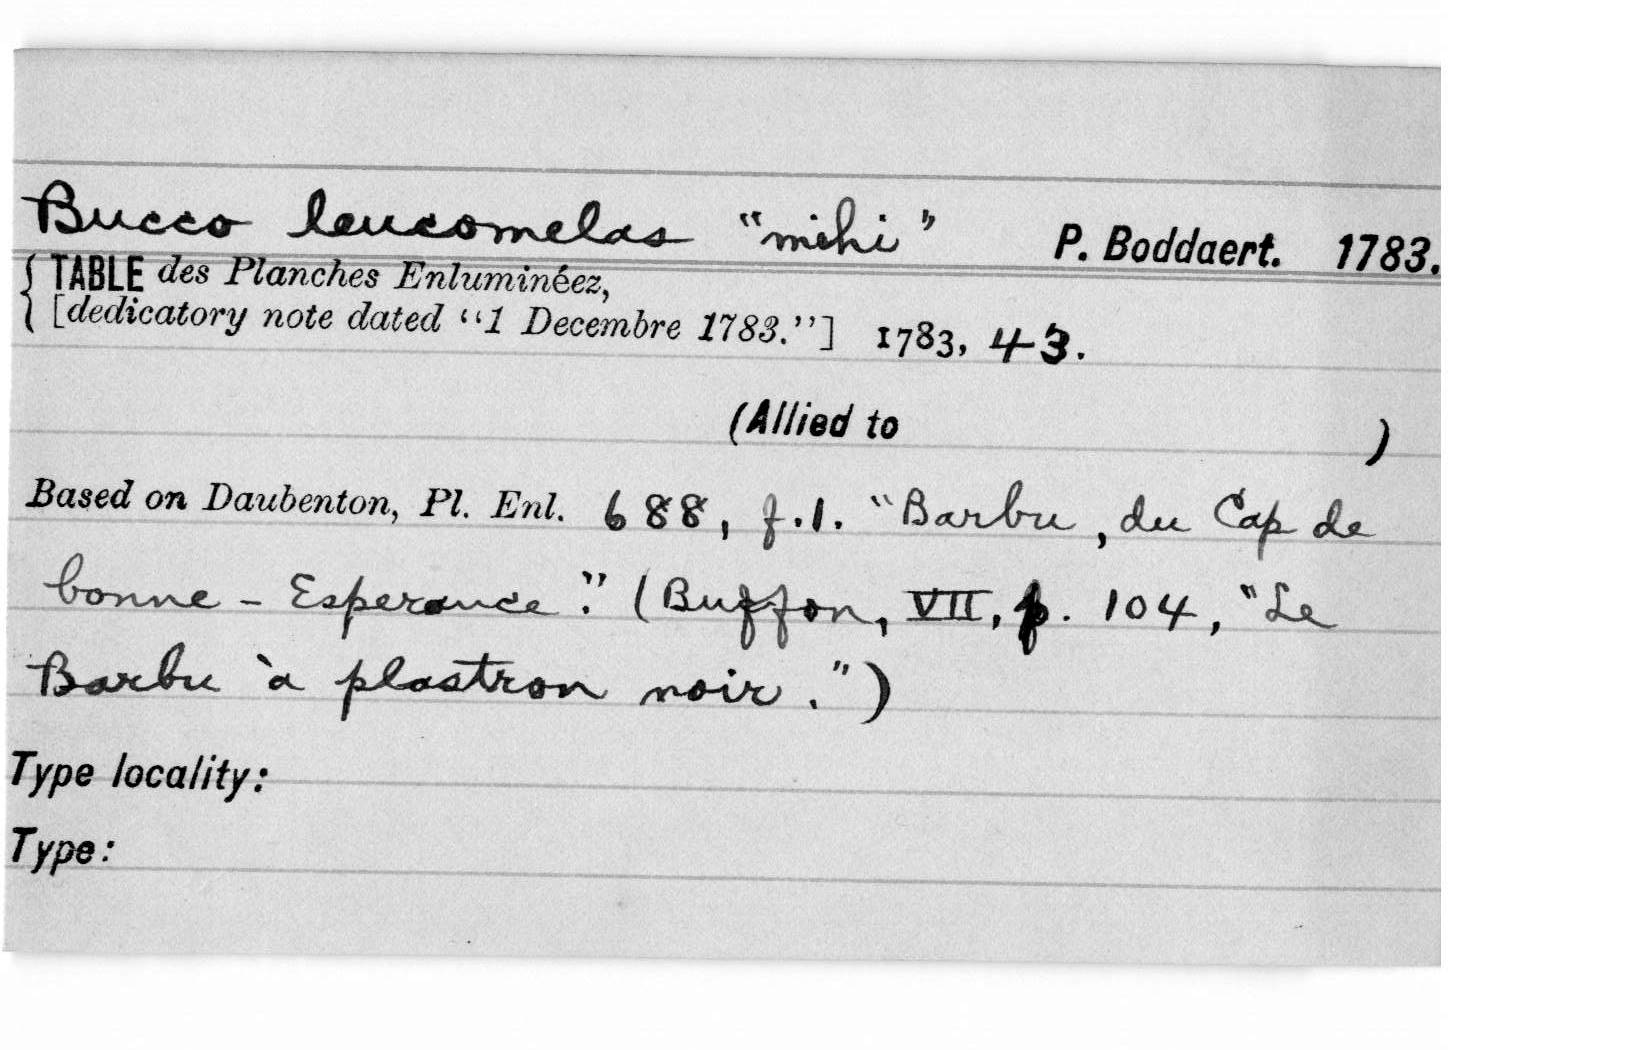 Bucco leucomelas "mihi" P. Boddaert. 1783.
{ TABLE des Planches Enluminéez,
{ [dedicatory note dated "1 Decembre 1783."] 1783, 43.
(Allied to )
Based on Daubenton, Pl. Enl. 688, f.1. "Barbu, du Cap de
bonne - Esperance." (Buffon, VII, p. 104, "Le
Barbu à plastron noir.")
Type locality:
Type: